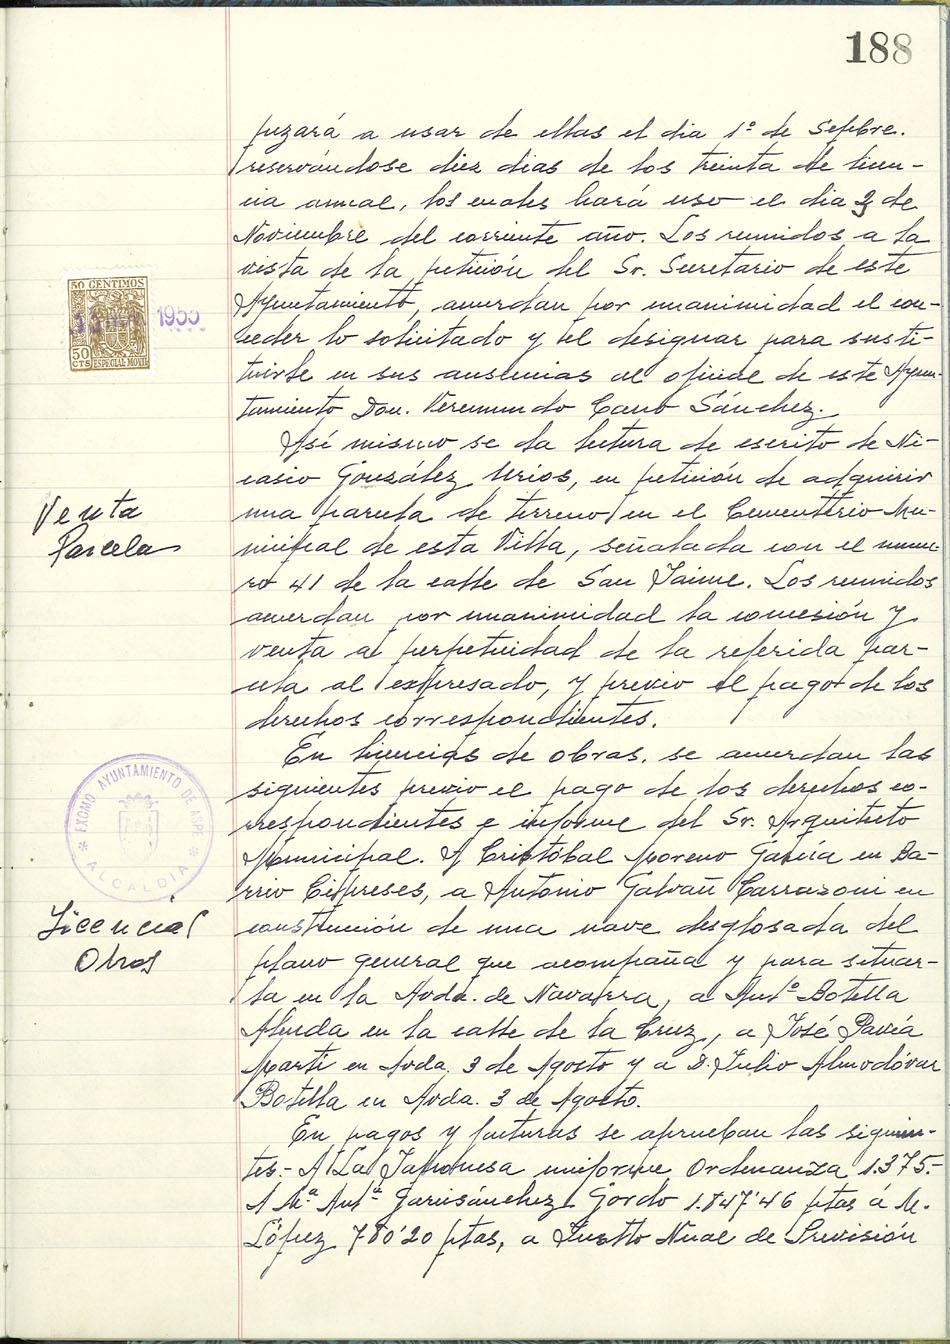 188
pezará a usar de ellas el dia 1º de Sepbre.
reservándose diez dias de los treinta de licen-
cia annal, los cuales hará uso el dia 2 de
Noviembre del corriente año. Los reunidos a la
vista de la petición del Sr. Secretario de este
Ayuntamiento, acuerdan por unanimidad el con-
ceder lo solicitado y el designar para susti-
tuirle en sus ausencias al oficial de este Ayun-
tamiento Don. Veremundo Cano Sánchez.
Así mismo se da lectura de escrito de Ni-
casio González Urios, en petición de adquirir
una parcela de terreno en el Cementerio Mu-
nicipal de esta Villa, señalada con el nume-
ro 41 de la calle de San Jaime. Los reunidos
acuerdan por unanimidad la concesión y
venta a perpetuidad de la referida par-
cela al expresado, y previo el pago de los
derechos correspondientes.
En licencias de obras. se acuerdan las
siguientes previo el pago de los derechos co-
rrespondientes e informe del Sr. Arquiteto
Municipal. A Cristóbal Moreno García en Ba-
rrio Cipreses, a Antonio Galvañ Carrasoni en
construcción de una nave desglosada del
plano general que acompaña y para situar-
la en la Avda. de Navarra, a Antº Botella
Almeda en la calle de la Cruz, a José Pavía
Martí en Avda. 3 de Agosto y a D. Julio Almodóvar
Botella en Avda. 3 de Agosto.
En pagos y facturas se aprueban las siguien-
tes.- A La Japonesa uniforme Ordenanza 1.375.-
A Mª Antª Garisánchez Gordo 1.847'46 ptas á M.
López 780'20 ptas, a Instto Nual de Previsión
50 CENTIMOS
1955
50
CTS ESPECIAL MOVIL
Venta
Parcela
EXCMO AYUNTAMIENTO DE ASPE
ALCALDIA
Licencias
Obras